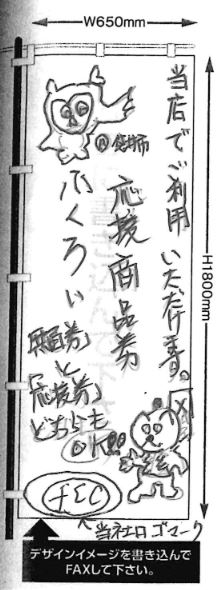 W650mm
H1800mm
当店でご利用いただけます。
応援商品券
ふくろい
「応援券」
と
どちらも
OK!!
fEC
当社ロゴマーク
デザインイメージを書き込んで
FAXして下さい。